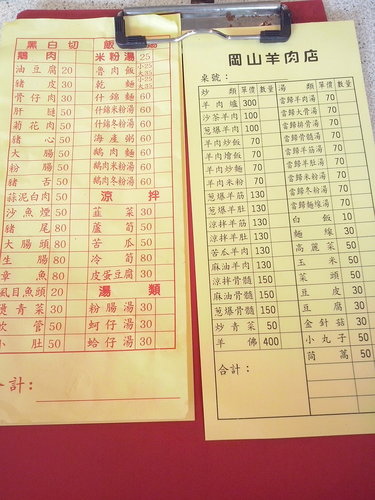 黑白切
鵝肉
油豆腐 20
豬皮 30
骨仔肉 30
肝腱 50
菊花肉 50
豬心 50
大腸 50
粉腸 50
豬舌 50
蒜泥白肉 50
沙魚煙 50
豬尾 80
大腸頭 80
生腸 80
章魚 80
虱目魚頭 20
燙青菜 30
軟管 50
小肚 50
米粉湯 25
魯肉飯 大35 小25
乾麵 大35 小25
什錦麵 60
什錦米粉湯 60
什錦冬粉湯 60
海產粥 60
鵝肉麵 60
鵝肉米粉湯 60
鵝肉冬粉湯 60
涼拌
韮菜 30
蘆筍 50
苦瓜 50
冷筍 80
皮蛋豆腐 30
湯類
粉腸湯 30
蚵仔湯 30
蛤仔湯 50
合計：
岡山羊肉店
桌號：
炒類 單價 數量
羊肉爐 300
沙茶羊肉 100
蔥爆羊肉 100
羊肉炒飯 70
羊肉燴飯 70
羊肉炒麵 70
羊肉米粉 70
蔥爆羊筋 130
蔥爆羊肚 130
涼拌羊筋 130
涼拌羊肚 130
苦瓜羊肉 130
麻油羊肉 130
涼拌骨髓 150
麻油骨髓 150
蔥爆骨髓 150
炒青菜 50
羊佛 400
湯類 單價 數量
當歸羊肉湯 70
當歸大骨湯 70
當歸排骨湯 70
當歸骨髓湯 70
當歸羊筋湯 70
當歸羊肚湯 70
當歸米粉湯 70
當歸冬粉湯 70
當歸麵線湯 70
白飯 10
麵線 30
高麗菜 50
玉米 50
菜頭 50
豆皮 30
豆腐 30
金針菇 30
小丸子 50
茼萵 50
合計：